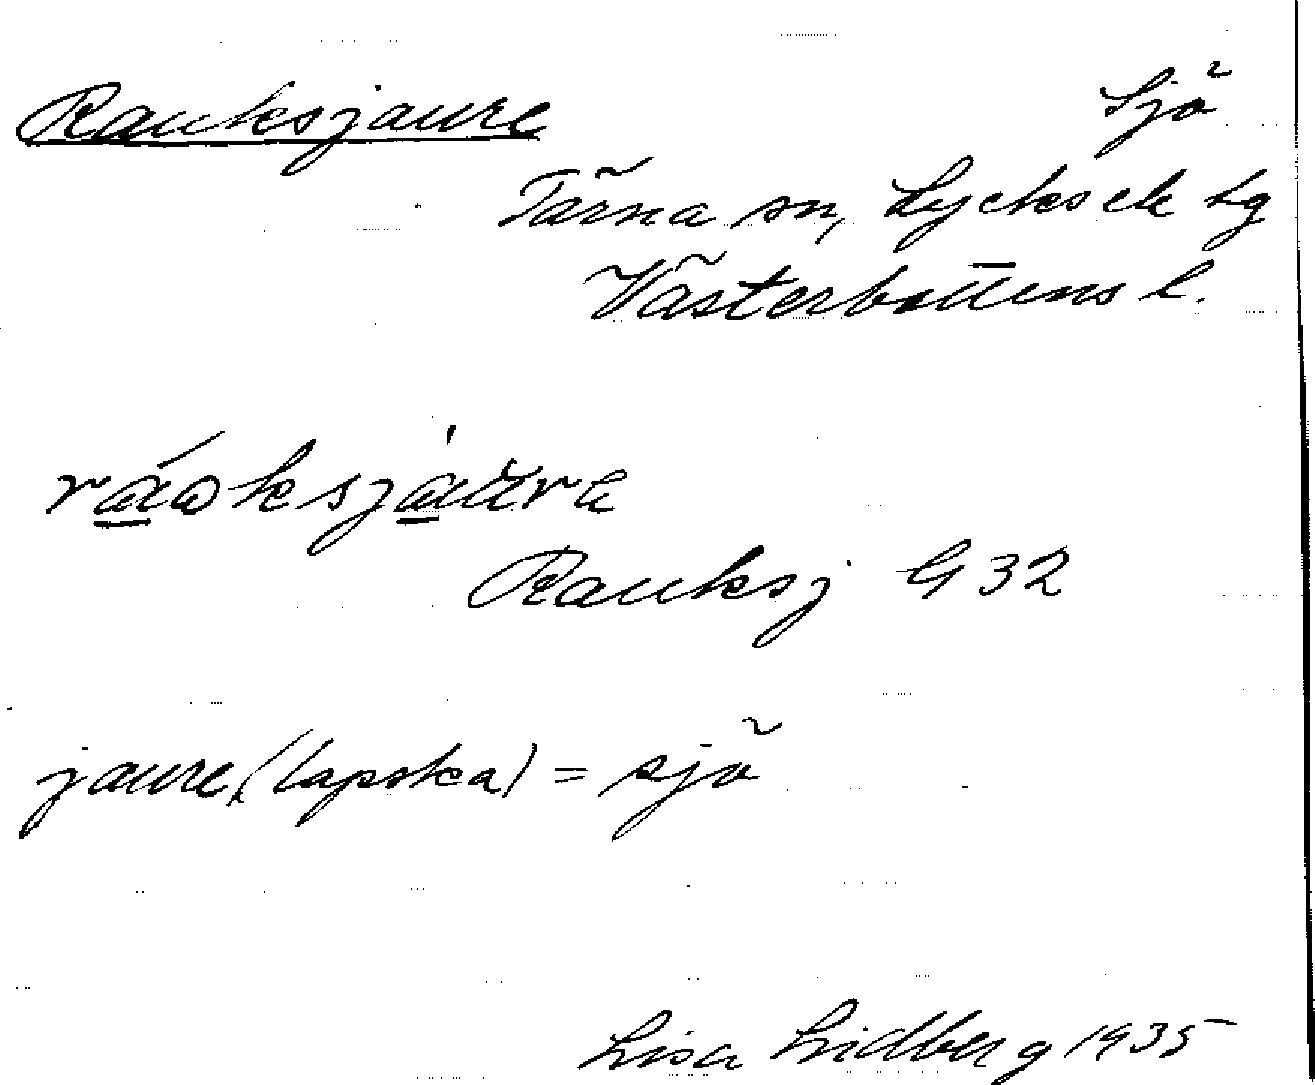 Rauksjaure Sjö
Tärna sn, Lycksele lg
Västerbottens l.
ráoksjàu̯re
Rauksj G 32
jaure (lapska) = sjö
Lisa Lidberg 1935